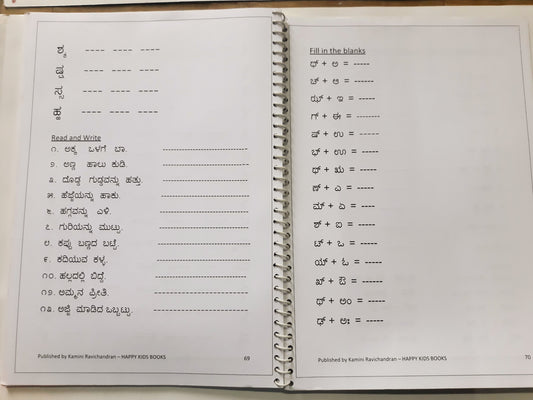 ಶ್ಶ ---- ---- ----
ಷ್ಷ ---- ---- ----
ಸ್ಸ ---- ---- ----
ಹ್ಹ ---- ---- ----
Read and Write
೧. ಅಕ್ಕ ಒಳಗೆ ಬಾ. ----------------------
೨. ಅಣ್ಣ ಹಾಲು ಕುಡಿ. ----------------------
೩. ದೊಡ್ಡ ಗುಡ್ಡವನ್ನು ಹತ್ತು. ----------------------
೫. ಹೆಜ್ಜೆಯನ್ನು ಹಾಕು. ----------------------
೬. ಹಗ್ಗವನ್ನು ಎಳಿ. ----------------------
೭. ಗುರಿಯನ್ನು ಮುಟ್ಟು. ----------------------
೮. ಕಪ್ಪು ಬಣ್ಣದ ಬಟ್ಟೆ. ----------------------
೯. ಕದಿಯುವ ಕಳ್ಳ. ----------------------
೧೦. ಹಲ್ಲದಲ್ಲಿ ಬಿದ್ದೆ. ----------------------
೧೨. ಅಮ್ಮನ ಪ್ರೀತಿ. ----------------------
೧೩. ಅಜ್ಜಿ ಮಾಡಿದ ಒಬ್ಬಟ್ಟು. ----------------------
Published by Kamini Ravichandran – HAPPY KIDS BOOKS 69
Fill in the blanks
ಢ್ + ಅ = -----
ಚ್ + ಆ = ------
ಝ್ + ಇ = -------
ಗ್ + ಈ = --------
ಷ್ + ಉ = ------
ಭ್ + ಊ = ------
ಥ್ + ಋ = ------
ಣ್ + ಎ = -----
ಮ್ + ಏ = ----
ಶ್ + ಐ = -----
ಟ್ + ಒ = -----
ಯ್ + ಓ = -----
ಖ್ + ಔ = ------
ಥ್ + ಅಂ = -----
ಢ್ + ಅಃ = -----
Published by Kamini Ravichandran – HAPPY KIDS BOOKS 70